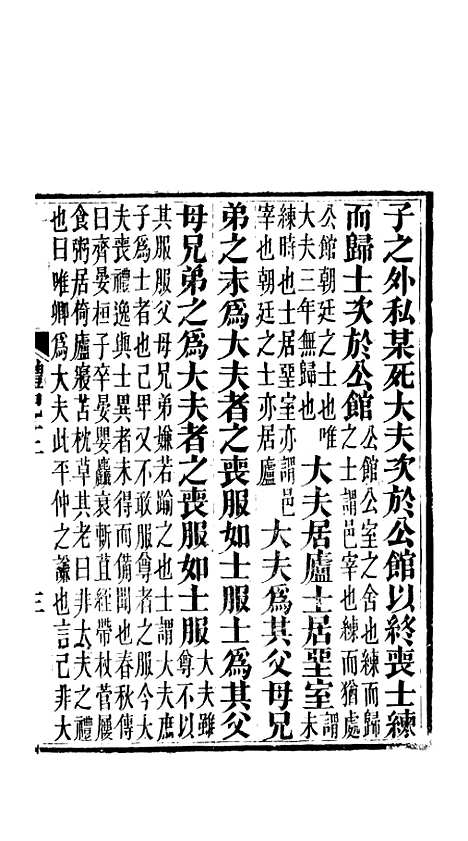 子之外私某死大夫次於公館以終喪士練
而歸士次於公館公館公室之舍也練而歸之士謂邑宰也練而猶處
公館朝廷之士也唯大夫三年無歸也大夫居廬士居堊室謂未
練時也士居堊室亦謂邑宰也朝廷之士亦居廬大夫爲其父母兄
弟之未爲大夫者之喪服如士服士爲其父
母兄弟之爲大夫者之喪服如士服大夫雖尊不以
其服服父母兄弟嫌若踰之也士謂大夫庶
子爲士者也己甲又不敢服尊者之服今大
夫喪禮逸與士異者未得而備聞也春秋傳
曰齊晏桓子卒晏嬰麤衰斬苴絰帶杖菅屨
食粥居倚廬寢苫枕草其老曰非大夫之禮
也曰唯卿爲大夫此平仲之謙也言己非大
禮記十二
三